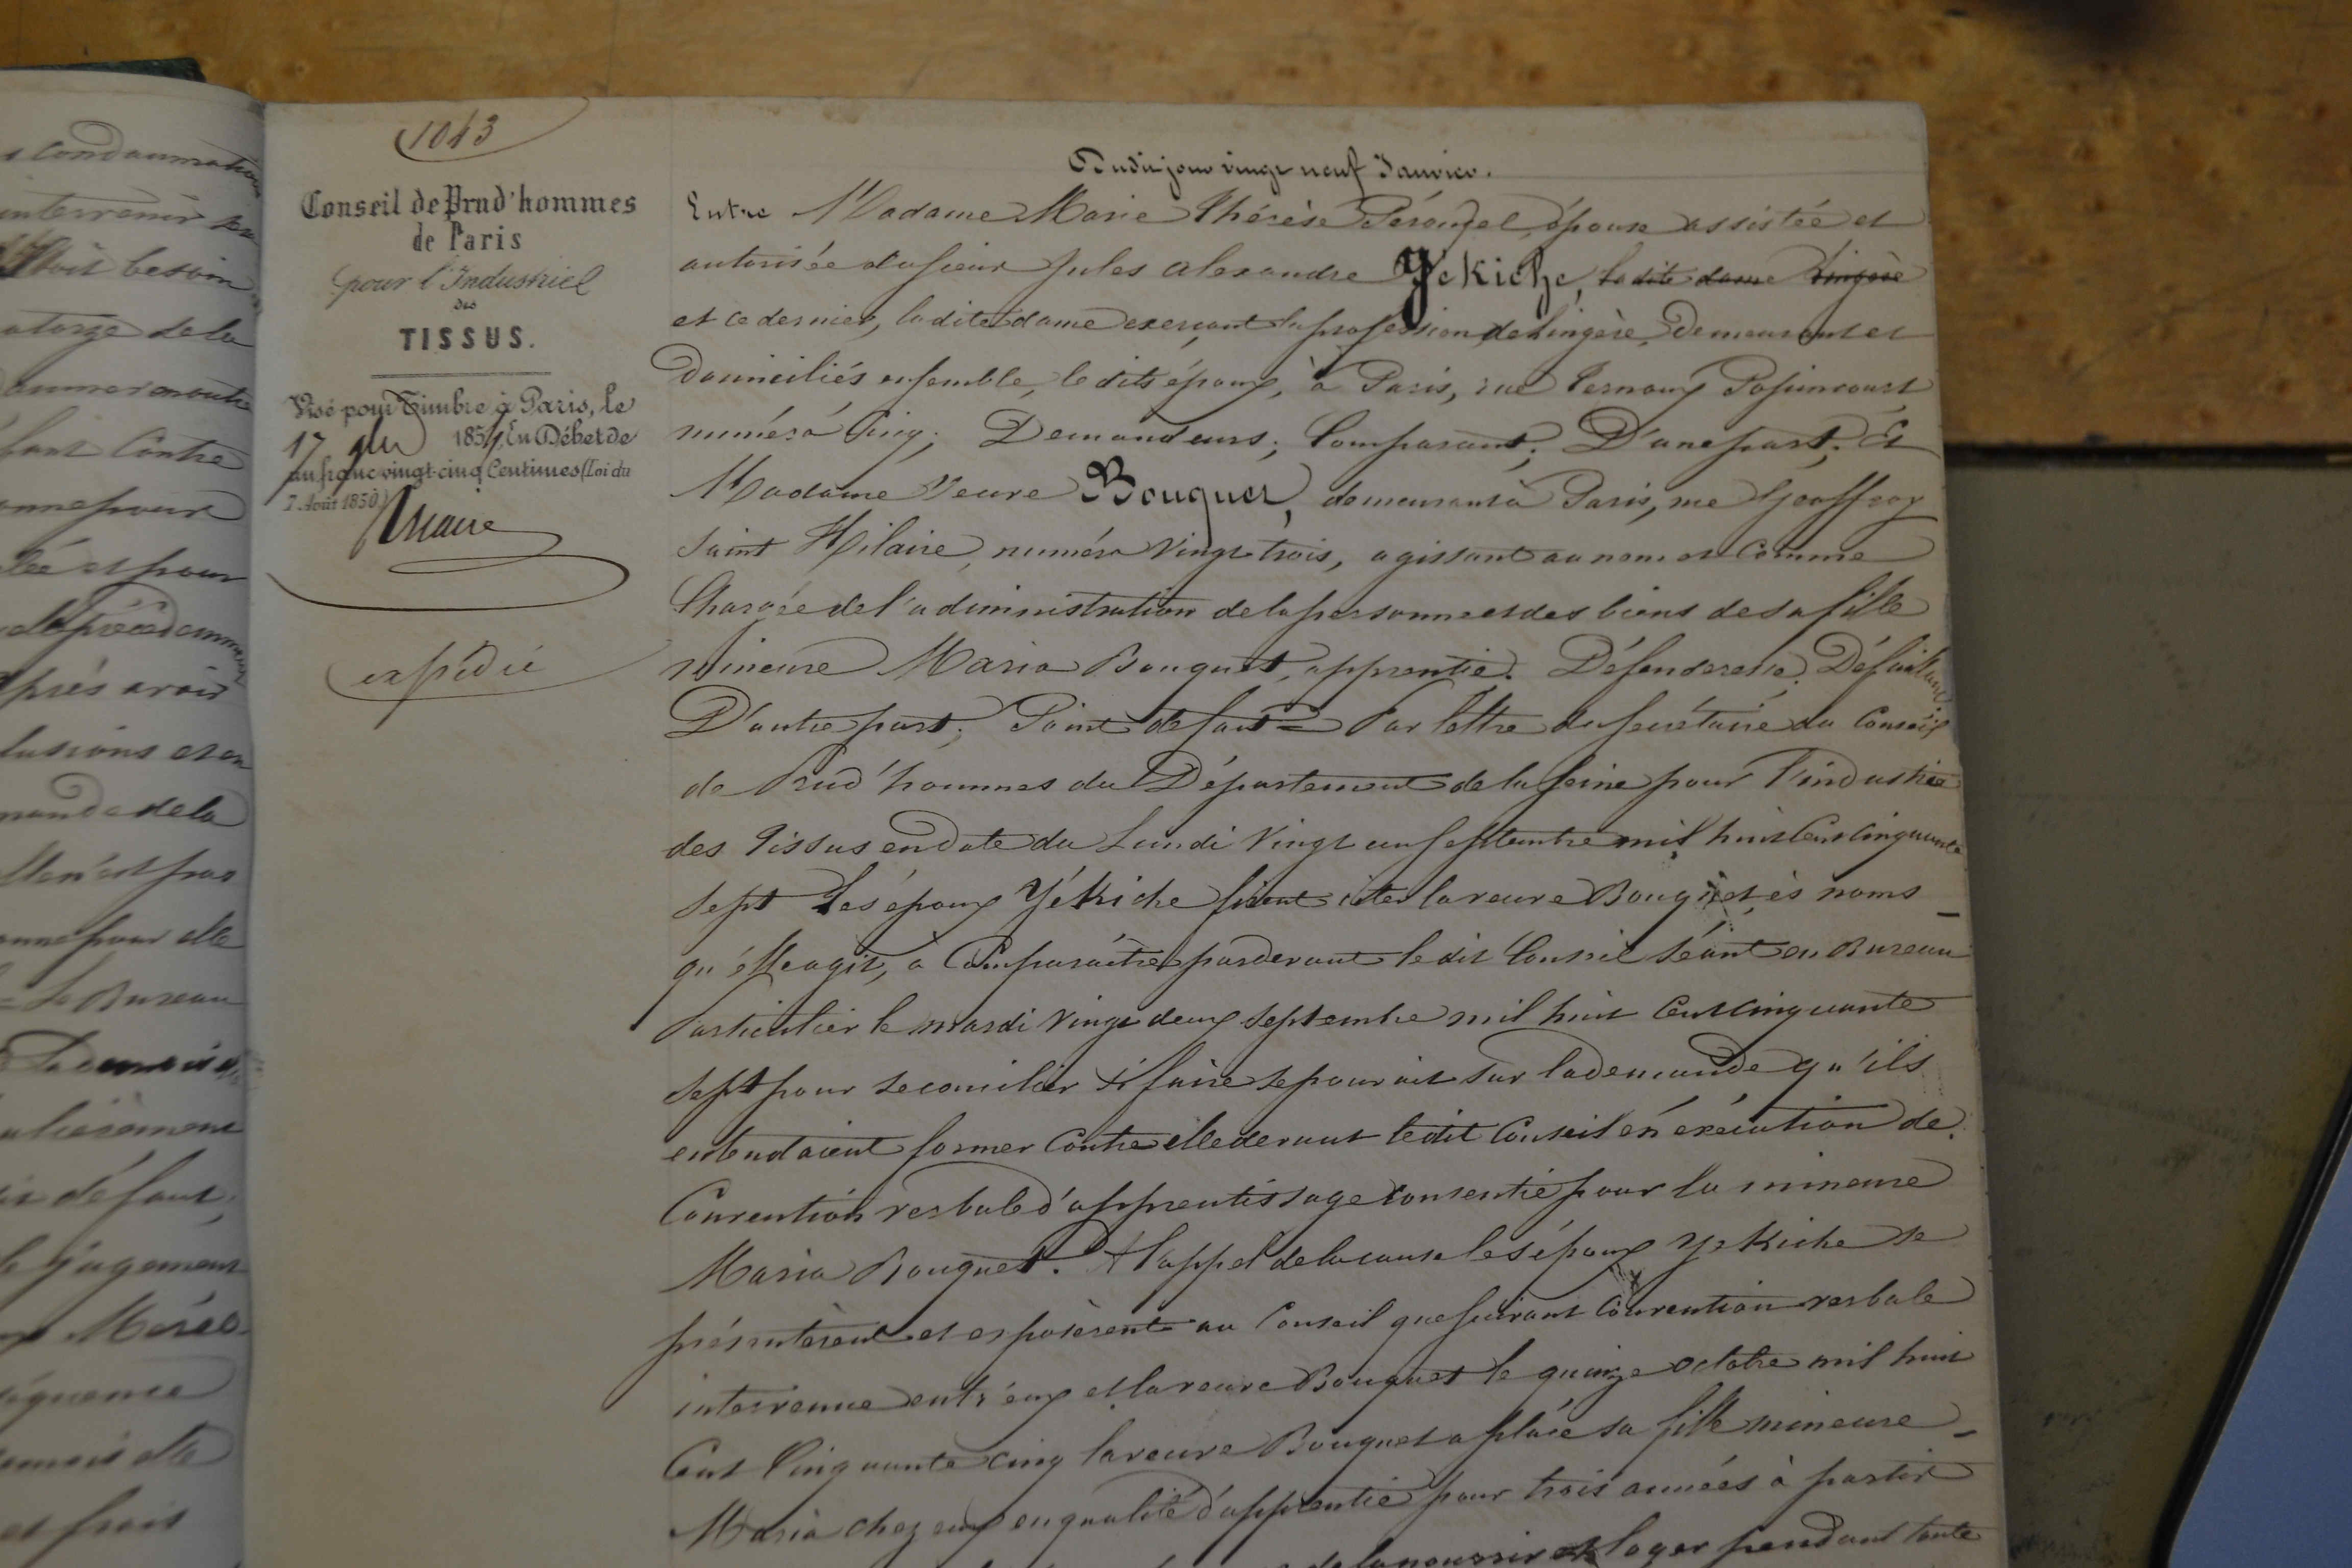 condamnation
intervenir
besoin
de la
contre
fant Contre
et pour
après avoir
mande de la
n'est pas
pour elle
Le Bureau
défaut
jugement
et frais
1043
Conseil de Prud'hommes
de Paris
pour l'Industriel
des
TISSUS.
Visé pour Timbre à Paris, le
17 185 En Débet de
un franc vingt-cinq Centimes (Loi du
7 Août 1850)
expédié
Dudit jour vingt neuf Janvier.
Entre Madame Marie Thérèse épouse assistée et
autorisée du sieur Jules Alexandre Yekiche, la dite dame lingère
et ce dernier, la dite dame exerçant la profession de lingère, Demeurant et
Domiciliés ensemble, le dits époux, à Paris, rue Ternaux Popincourt
numéro Cinq; Demandeurs; Comparant; D'une part; Et
Madame Veuve Bouquet, demeurant à Paris, rue Geoffroy
Saint Hilaire, numéro Vingt trois, agissant au nom et Comme
Chargée de l'administration de la personne et des biens de sa fille
mineure Maria Bouquet, apprentie. Défenderesse; Défaillante
D'autre part; Point de fait = Par lettre du secrétaire du Conseil
de Prud'hommes du Département de la Seine pour l'industrie
des Tissus en date du Lundi Vingt un septembre mil huit Cent Cinquante
sept Les époux Yékiche firent citer la veuve Bouquet ès noms
qu'elle agit, à Comparaître pardevant le dit Conseil séant en Bureau
Particulier le mardi Vingt deux septembre mil huit Cent Cinquante
sept pour se concilier si faire se pouvait sur la demande qu'ils
entendaient former Contre elle devant le dit Conseil en exécution de
Convention verbale d'apprentissage consentie pour la mineure
Maria Bouquet. A l'appel de la cause les époux Yekiche se
présentèrent et exposèrent au Conseil que suivant Convention verbale
intervenue entr'eux et la veuve Bouquet le quinze octobre mil huit
Cent Cinquante cinq la veuve Bouquet a placé sa fille mineure
Maria chez eux en qualité d'apprentie pour trois années à partir
de la nourrir et loger pendant toute